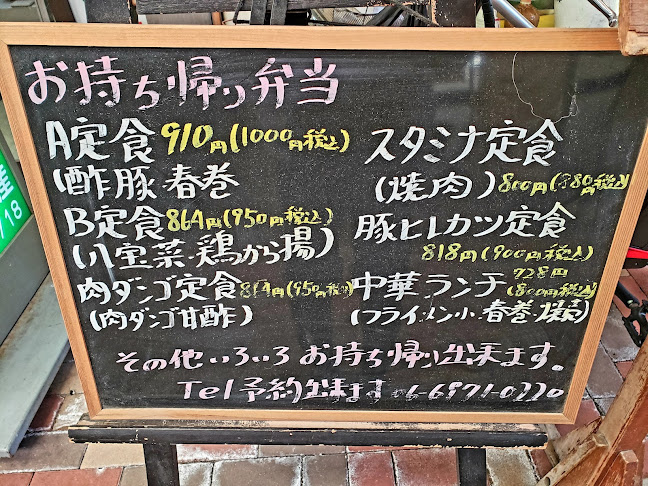 お持ち帰り弁当
A定食 910円(1000円税込)
(酢豚 春巻
B定食 864円(950円税込)
(八宝菜・鶏から揚)
肉ダンゴ定食 864円(950円税込)
(肉ダンゴ甘酢)
スタミナ定食
(焼肉) 800円(880円税込)
豚ヒレカツ定食
818円(900円税込)
中華ランチ 728円(800円税込)
(フライメン小、春巻・
その他いろいろお持ち帰り出来ます。
Tel予約出来ます 06-6971-0220
/18